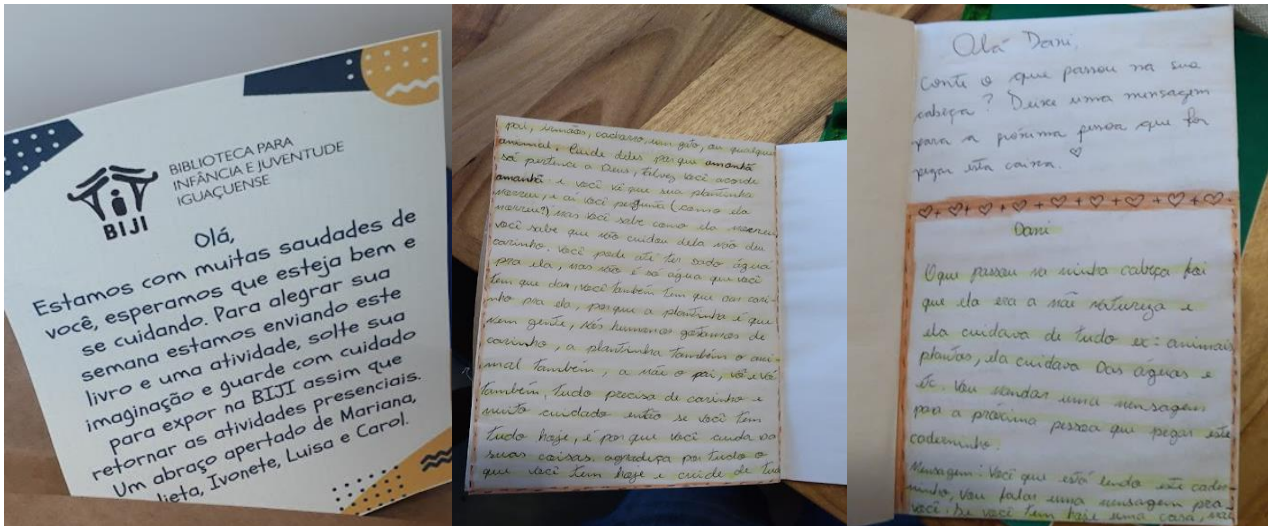 BIJI
BIBLIOTECA PARA
INFÂNCIA E JUVENTUDE
IGUAÇUENSE
Olá,
Estamos com muitas saudades de
você, esperamos que esteja bem e
se cuidando. Para alegrar sua
semana estamos enviando este
livro e uma atividade, solte sua
imaginação e guarde com cuidado
para expor na BIJI assim que
retornar as atividades presenciais.
Um abraço apertado de Mariana,
lieta, Ivonete, Luisa e Carol.
pai, irmãos, cachorro, um gato, ou qualquer
animal. Cuide deles porque amanhã
só pertence a Deus, talvez você acorde
amanhã e você vê que sua plantinha
morreu, e aí você pergunta (como ela
morreu?) mas você sabe como ela morreu
você sabe que não cuidou dela não deu
carinho. Você pode até ter dado água
pra ela, mas não é só água que você
tem que dar, você também tem que dar cari-
nho pra ela, porque a plantinha é que
nem gente, nós humanos gostamos de
carinho, a plantinha também o ani-
mal também, a mãe o pai, vó e vô
também, tudo precisa de carinho e
muito cuidado então se você tem
tudo hoje, é porque você cuida das
suas coisas. agradeça por tudo o
que você tem hoje e cuide de tudo
Olá Dani,
Conte o que passou na sua
cabeça? Deixe uma mensagem
para a próxima pessoa que for
pegar esta caixa.
Dani
Oque passou na minha cabeça foi
que ela era a mãe natureza e
ela cuidava de tudo ex: animais
plantas, ela cuidava das águas e
etc. Vou mandar uma mensagem
para a próxima pessoa que pegar este
caderninho.
Mensagem: Você que está lendo este cader-
ninho, vou falar uma mensagem pra
você. Se você tem hoje uma casa, mãe